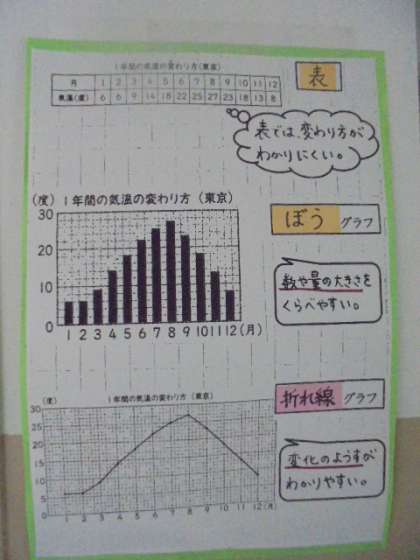 1年間の気温の変わり方(東京)
表
月 1 2 3 4 5 6 7 8 9 10 11 12
気温(度) 6 6 9 14 18 22 25 27 23 18 13 8
表では、変わり方が
わかりにくい。
(度) 1年間の気温の変わり方 (東京)
30
20
10
0
1 2 3 4 5 6 7 8 9 10 11 12 (月)
ぼう グラフ
数や量の大きさを
くらべやすい。
(度) 1年間の気温の変わり方 (東京)
30
25
20
15
10
5
0
1 2 3 4 5 6 7 8 9 10 11 12 (月)
折れ線 グラフ
変化のようすが
わかりやすい。